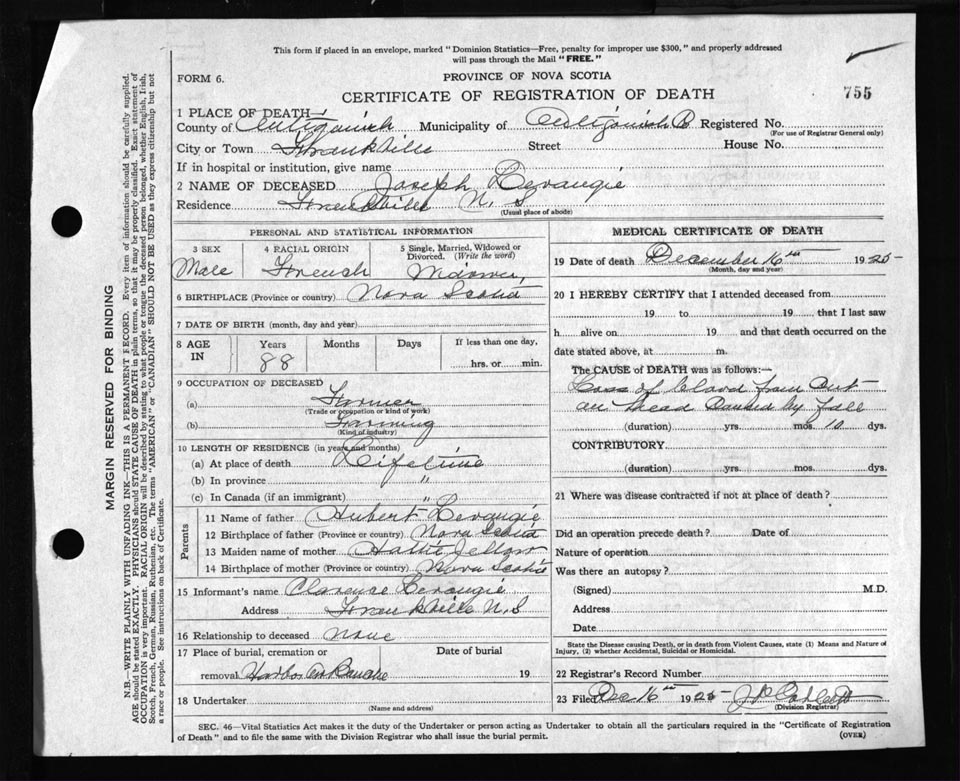 This form if placed in an envelope, marked "Dominion Statistics—Free, penalty for improper use $300," and properly addressed
will pass through the Mail "FREE."
FORM 6.
PROVINCE OF NOVA SCOTIA
CERTIFICATE OF REGISTRATION OF DEATH
755
1 PLACE OF DEATH—
County of Antigonish Municipality of Antigonish Co Registered No.
(For use of Registrar General only)
City or Town Frankville Street House No.
If in hospital or institution, give name
2 NAME OF DECEASED Joseph Levangie
Residence Frankville N. S
(Usual place of abode)
PERSONAL AND STATISTICAL INFORMATION
3 SEX
Male
4 RACIAL ORIGIN
French
5 Single, Married, Widowed or Divorced. (Write the word)
Widower
6 BIRTHPLACE (Province or country) Nova Scotia
7 DATE OF BIRTH (month, day and year)
8 AGE IN Years Months Days If less than one day,
88 hrs. or min.
9 OCCUPATION OF DECEASED
(a) Farmer
(Trade or occupation or kind of work)
(b) Farming
(Kind of industry)
10 LENGTH OF RESIDENCE (in years and months)
(a) At place of death Lifetime
(b) In province "
(c) In Canada (if an immigrant) "
Parents
11 Name of father Hubert Levangie
12 Birthplace of father (Province or country) Nova Scotia
13 Maiden name of mother
14 Birthplace of mother (Province or country) Nova Scotia
15 Informant's name Clarence Levangie
Address Frankville N. S
16 Relationship to deceased None
17 Place of burial, cremation or Date of burial
removal Harbor Au Bouche 19
18 Undertaker
(Name and address)
MEDICAL CERTIFICATE OF DEATH
19 Date of death December 16th 1925
(Month, day and year)
20 I HEREBY CERTIFY that I attended deceased from
19 to 19 , that I last saw
h alive on 19 and that death occurred on the
date stated above, at m.
The CAUSE of DEATH was as follows:—
Loss of blood from Cut
on head Caused by fall
(duration) yrs. mos. 10 dys.
CONTRIBUTORY
(duration) yrs. mos. dys.
21 Where was disease contracted if not at place of death?
Did an operation precede death? Date of
Nature of operation
Was there an autopsy?
(Signed) M.D.
Address
Date
State the Disease causing Death, or in death from Violent Causes, state (1) Means and Nature of
Injury, (2) whether Accidental, Suicidal or Homicidal.
22 Registrar's Record Number
23 Filed Dec 16th 1925
(Division Registrar)
SEC. 46—Vital Statistics Act makes it the duty of the Undertaker or person acting as Undertaker to obtain all the particulars required in the "Certificate of Registration
of Death" and to file the same with the Division Registrar who shall issue the burial permit.
(OVER)
MARGIN RESERVED FOR BINDING
N.B.—WRITE PLAINLY WITH UNFADING INK—THIS IS A PERMANENT RECORD. Every item of information should be carefully supplied.
AGE should be stated EXACTLY. PHYSICIANS should STATE CAUSE OF DEATH in plain terms, so that it may be properly classified. Exact statement of
OCCUPATION is very important. RACIAL ORIGIN will be described by stating to what people or tongue the deceased person belonged, whether English, Irish,
Scotch, French, German, Russian, Ruthenian, etc. The terms "AMERICAN" or "CANADIAN" SHOULD NOT BE USED as they express citizenship but not
a race or people. See instructions on back of Certificate.